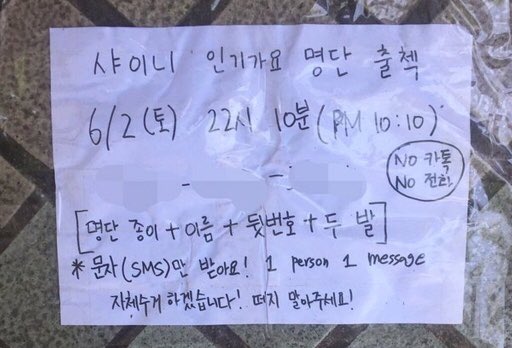 샤이니 인기가요 명단 출첵
6/2(토) 22시 10분(PM 10:10)
No 카톡
No 전화
[명단 종이+이름+뒷번호+두 발]
* 문자(SMS)만 받아요! 1 person 1 message
자체수거 하겠습니다! 떼지 말아주세요!